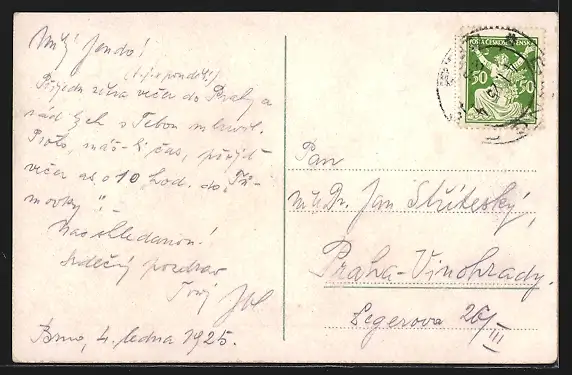 Milý Jendo!
(t.j. v pondělí)
Přijedu zítra večer do Prahy a
rád bych s Tebou mluvil.
Proto, máš-li čas, přijď
večer as o 10 hod. do "Tů-
movky". -
Na shledanou!
Srdečný pozdrav
Tvůj
Brno, 4. ledna 1925.
POŠTA ČESKOSLOVENSKÁ
50 50
Pan
MUDr. Jan Stříteský,
Praha-Vinohrady.
Legerova 26/III